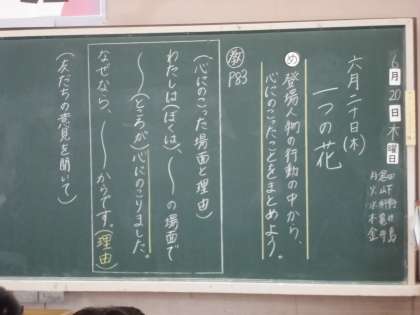 6月20日木曜日
六月二十日(木)
一つの花
め 登場人物の行動の中から、
心にのこったことをまとめよう。
教 P83
(心にのこった場面と理由)
わたしは(ぼくは)、〜〜の場面で
〜〜(ところが)心にのこりました。
なぜなら、〜〜からです。(理由)
(友だちの意見を聞いて)
月火水木金